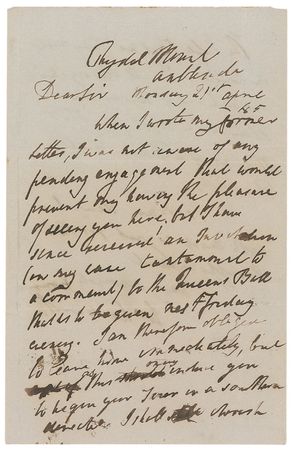 Rydal Mount
Ambleside
Dear Sir Monday 21st April
/45
When I wrote my former
letter, I was not aware of any
pending engagement that would
prevent my having the pleasure
of seeing you here, but I have
since received an Invitation
(in my case tantamount to
a command) to the Queens Ball
that is to be given next Friday
evening. I am therefore obliged
to leave home immediately, but
this induce you
to begin your Tour in a southern
direction I shall